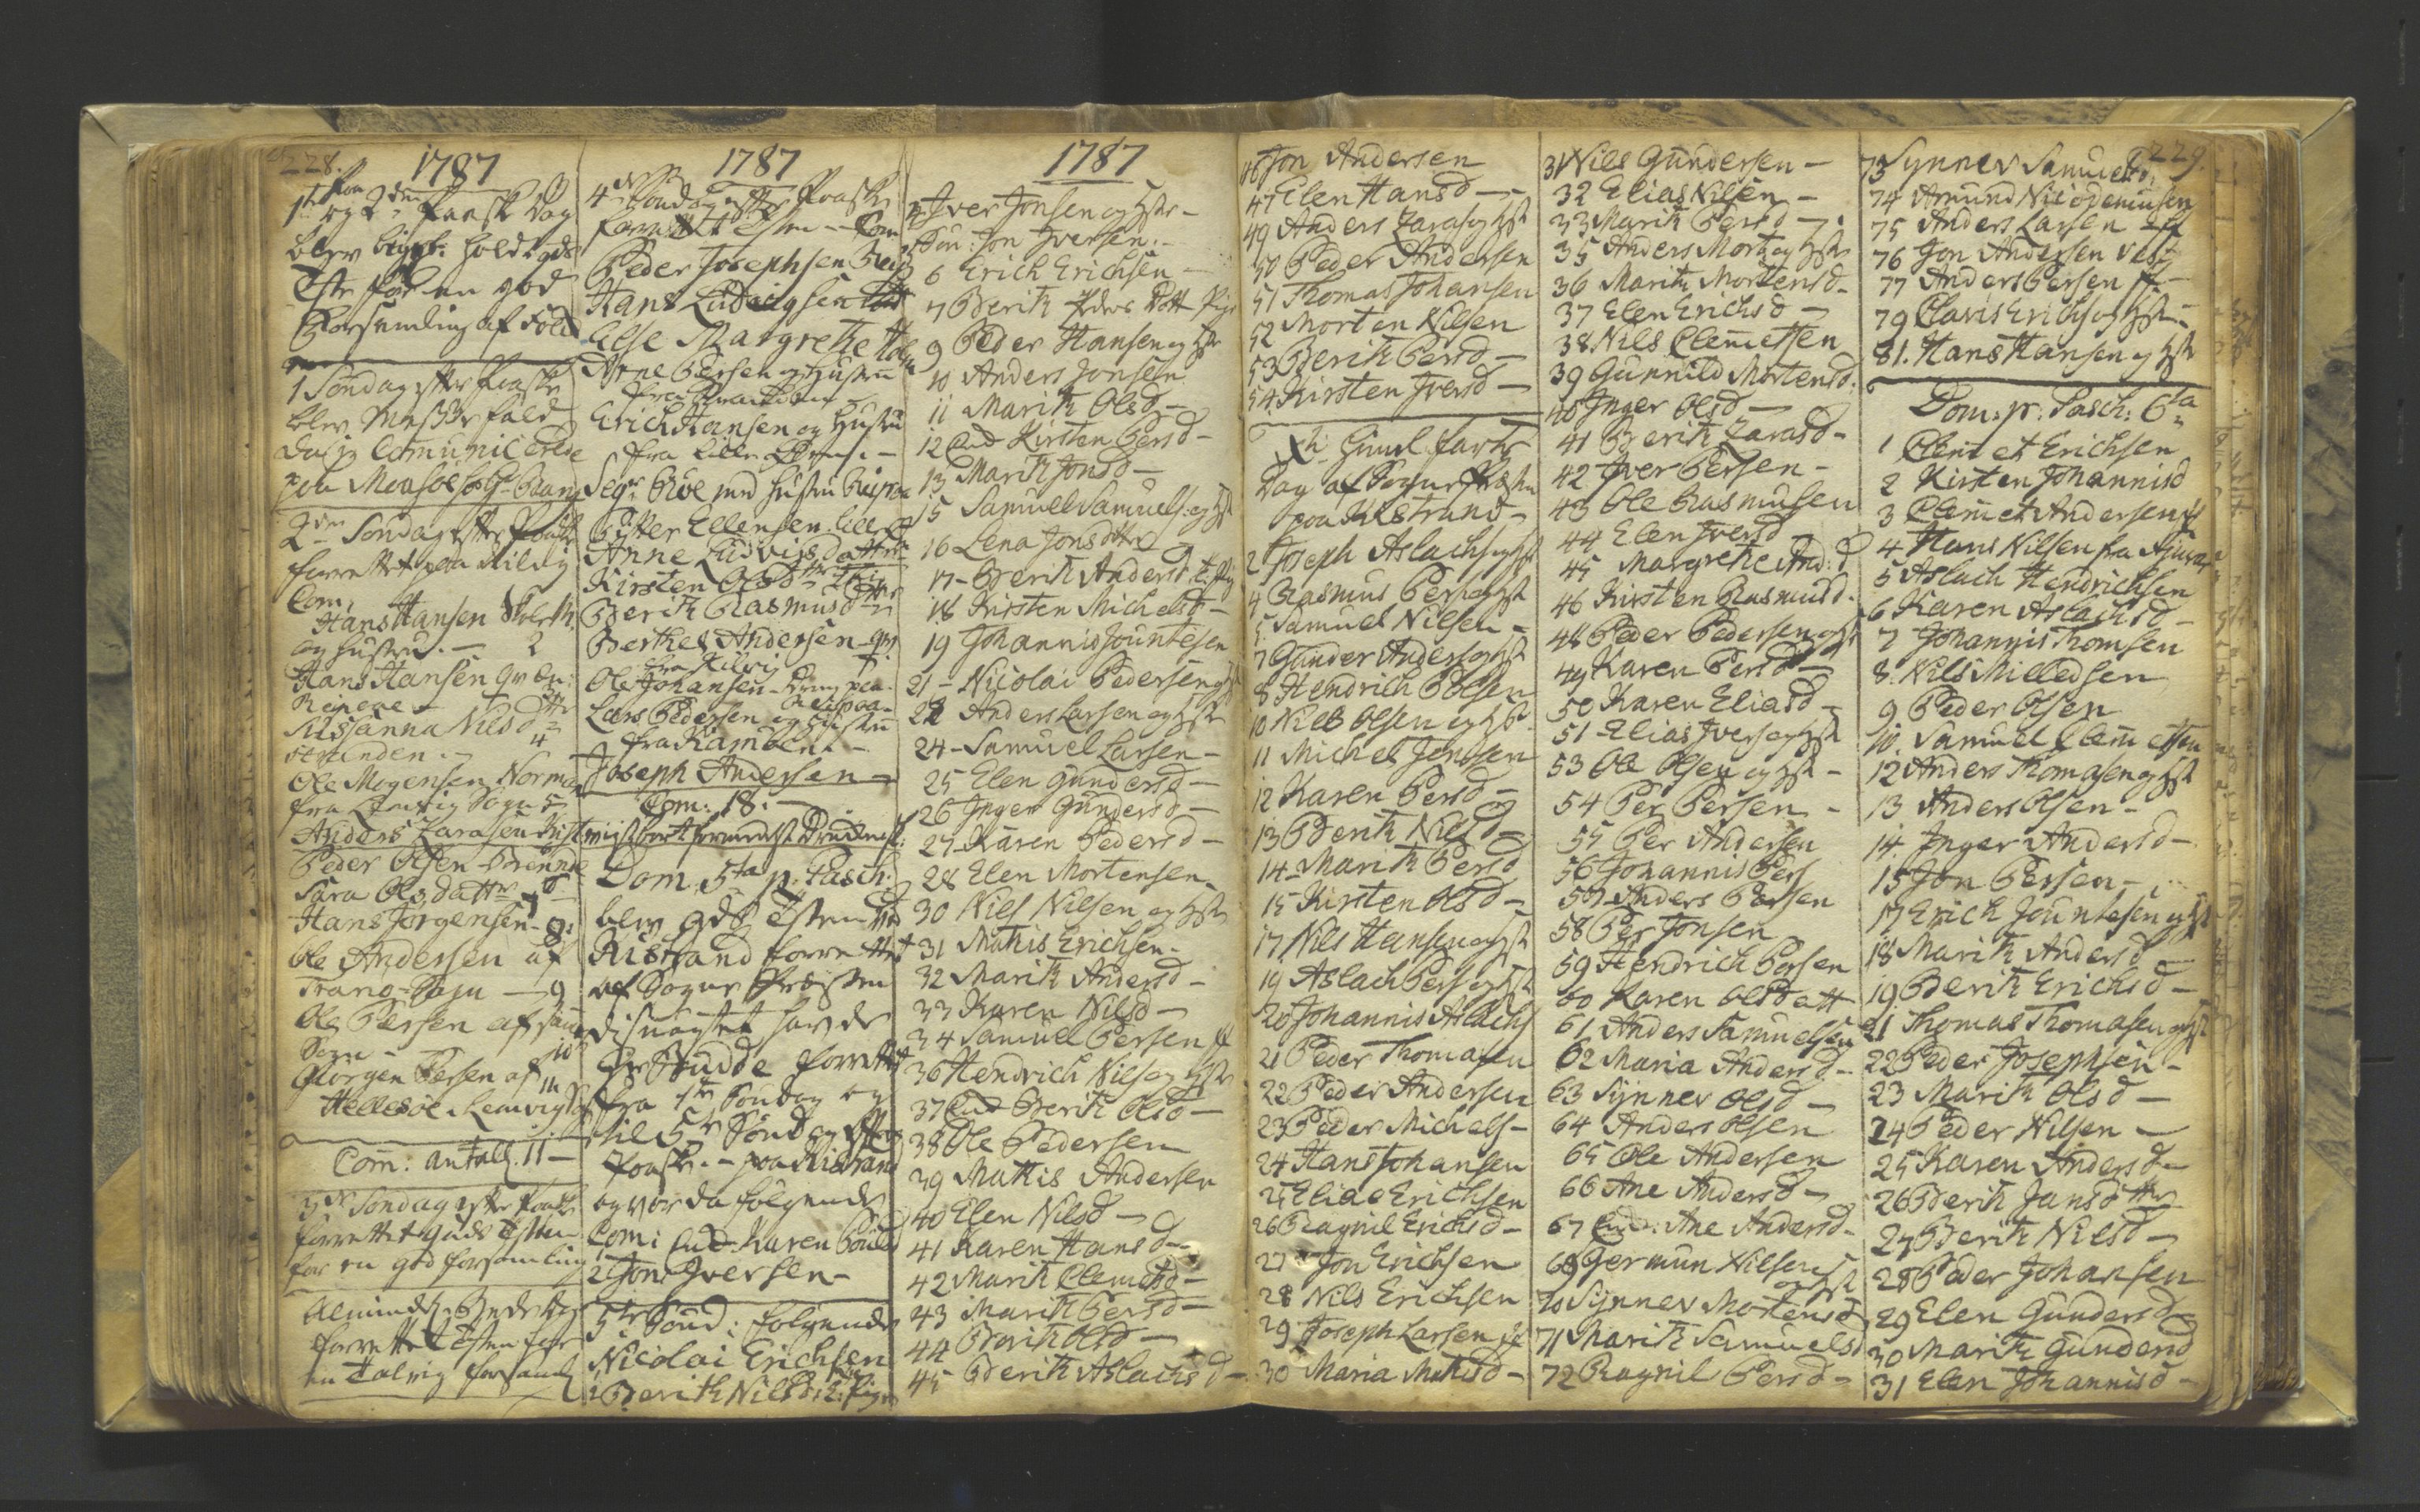 228.
1787
1ste og 2den Paaske Dag
blev
for en god
Forsamling af Folk
1 Søndag efter Paaske
blev Messe fald
da jeg Comunicerede
paa
2den Søndag efter Paaske
forrettet paa
Com,
Hans Hansen
og Hustru. – 2
Hans Hansen
Reppene –
Susanna Nilsd
4
Ole Mogensen Norman
fra Sogn 5
Anders Zarasen
Peder Olsen
Sara Olsdatter
Hans Jørgensen – 8
Ole Andersen af
Trano-Sogn – 9
Ole Persen af samme
Sogn – 10
Jørgen Persen af 11
Hellesøe
Com: Antall. 11 –
3die Søndag efter Paaske
forrettet Guds Tieneste
for en god forsamling
forrettet Tieneste for
en talrig forsaml
1787
4de Søndag efter Paaske
forrettet Tiensten – Com
Peder Josephsen
Hans Ludvigsen
Else Margrethe Holm
Arne Persen og Hustru
fra
Erich Hansen og Hustru
fra Lille
med Hustru
Petter Ellensen
Anne Ludvigsdatter
Kirsten Olsd
Berith Rasmusd
Berthel Andersen
fra
Ole Johansen
Lars Pedersen og Hustru
fra Kamøen –
Joseph Andersen –
Com: 18. –
Dom. 5ta p. Pasch.
blev Gds Tiensten ved
Kistrand forrettet
af Sogne Præsten
havde
Hr Budde forrettet
fra 1ste Søndag og
til 5te Søndag efter
Paaske. – paa Kistrand
og vor da følgende
Com: Enk. Karen Pouls
2 Jon Iversen –
5te Sønd: følgende
Nicolai Erichsen
2 Berith Nilsd: Pige
1787
4 Iver Jonsen og Hst –
Søn: Jon Iversen. –
6 Erich Erichsen –
7 Berith Peders Dott Pige
9 Peder Hansen og Hst
10 Anders Jonsen
11 Marith Olsd –
12 Enk Kirsten Persd –
13 Marith Jonsd –
15 Samuel Samuels: og Hst
16 Lena Jonsdttr
17 – Berith Andersd
18 Kirsten Michelsd –
19 Johannis Jountesen
21 – Nicolai Pedersen og Hst
22 Anders Larsen og Hst
24 – Samuel Larsen –
25 Elen Gundersd –
26 Inger Gundersd –
27 Karen Pedersd –
28 Elen Mortensen –
30 Niels Nilsen og Hst
31 Mathis Erichsen –
32 Marith Andersd –
33 Karen Nilsd –
34 Samuel Persen
36 Hendrich Nils og Hst
37 Enk Berith Olsd –
38 Ole Pedersen
39 Mathis Andersen
40 Elen Nilsd –
41 Karen Hansd –
42 Marith Clemetsd –
43 Marith Persd –
44 Berith Olsd –
45 Berith Aslachsd –
46 Jon Andersen
47 Elen Hansd –
49 Anders Zaras og Hst
50 Peder Andersen
51 Thomas Johansen
52 Morten Nilsen
53 Berith Persd –
54 Kirsten Iversd –
Xsti Himmel farts
Dag af Sogne Præsten
paa Kistrand –
2 Joseph Aslachs og Hst
4 Rasmus Pers og Hst
5 Samuel Nilsen –
7 Gunder Anders og Hst
8 Hendrich Olsen
10 Nils Olsen og Hst
11 Michel Jensen
12 Karen Persd –
13 Berith Nilsd –
14 – Marith Persd
15 Kirsten Olsd –
17 Nils Hansen og Hst
19 Aslach Pers og Hst
20 Johannis Aslachs
21 Peder Thomasen
22 Peder Andersen
23 Peder Michels –
24 Hans Johansen
25 Elias Erichsen
26 Ragnil Erichsd –
27 Jon Erichsen
28 Nils Erichsen
29 Joseph Larsen
30 Maria Mathisd –
31 Nils Gundersen –
32 Elias Nilsen –
33 Marith Persd –
35 Anders Mort og Hst
36 Marith Mortensd –
37 Elen Erichsd –
38 Nils Clemetsen
39 Gunnild Mortensd.
40 Inger Olsd –
41 Berith Zarasd –
42 Iver Persen –
43 Ole Rasmusen
44 Elen Iversd
45 Margrethe And:d
46 Kirsten Rasmusd.
48 Peder Pedersen og Hst
49 Karen Persd –
50 Karen Eliasd –
51 Elias Ivers og Hst
53 Ole Olsen og Hst –
54 Per Persen –
55 Per Andersen
56 Johannis Pers
57 Anders Persen
58 Per Jonsen
59 Hendrich Persen
60 Karen Olsdatt
61 Anders Samuelsen
62 Maria Andersd –
63 Synnev Olsd –
64 Anders Olsen
65 Ole Andersen
66 Ane Andersd –
67 Enk: Ane Andersd –
69 Germun Nilsen
og Hst
70 Synnev Mortensd
71 Marith Samuelsd
72 Ragnil Persd –
229.
73 Synnev Samuelsd,
74 Amund Nicodemusen
75 Anders Larsen
76 Jon Andersen
77 Anders Persen
79 Clavis Erichs og Hst –
81. Hans Hansen og Hst
Dom: p: Pasch: 6ta
1 Clemet Erichsen
2 Kirsten Johannisd
3 Clemet Andersen
4 Hans Nilsen fra
5 Aslach Hendrichsen
6 Karen Aslachsd –
7 Johannis Thomsen
8. Nils Milledsen
9 Peder Olsen
10. Samuel Clemetsen
12 Anders Thomasen og Hst
13 Anders Olsen –
14 Inger Andersd –
15 Jon Persen –
17 Erich Jountesen og Hst
18 Marith Andersd
19 Berith Erichsd –
21 Thomas Thomasen og Hst
22 Peder Josephsen –
23 Marith Olsd –
24 Peder Nilsen –
25 Karen Andersd –
26 Berith Jansdttr
27 Berith Nilsd –
28 Peder Johansen
29 Elen Gundersd –
30 Marith Gundersd
31 Elen Johannisd –